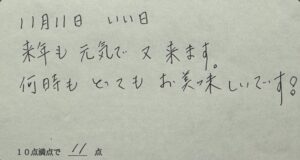 11月11日 いい日
来年も 元気で 又 来ます。
何時も とっても お美味しいです!
10点満点で 11 点